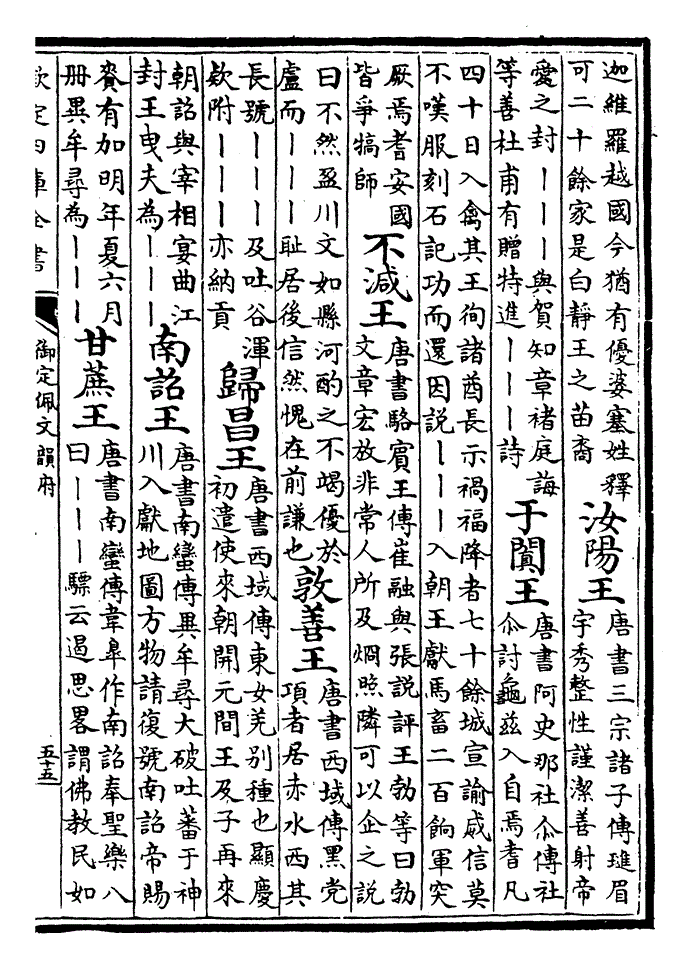 迦維羅越國今猶有優婆塞姓釋
可二十餘家是白靜王之苗裔
汝陽王
唐書三宗諸子傳璡眉
宇秀整性謹潔善射帝
愛之封丨丨丨與賀知章褚庭誨
等善杜甫有贈特進丨丨丨詩
于闐王
唐書阿史那社尒傳社
尒討龜茲入自焉耆凡
四十日入禽其王徇諸酋長示禍福降者七十餘城宣諭威信莫
不嘆服刻石記功而還因說丨丨丨入朝王獻馬畜二百餉軍突
厥焉耆安國
皆爭犒師
不減王
唐書駱賓王傳崔融與張說評王勃等曰勃
文章宏放非常人所及烱照隣可以企之說
曰不然盈川文如縣河酌之不竭優於
盧而丨丨丨恥居後信然愧在前謙也
敦善王
唐書西域傳黑党
項者居赤水西其
長號丨丨丨及吐谷渾
欵附丨丨丨亦納貢
歸昌王
唐書西域傳東女羌別種也顯慶
初遣使來朝開元間王及子再來
朝詔與宰相宴曲江
封王曳夫為丨丨丨
南詔王
唐書南蠻傳異牟尋大破吐蕃于神
川入獻地圖方物請復號南詔帝賜
賚有加明年夏六月
冊異牟尋為丨丨丨
甘蔗王
唐書南蠻傳韋臯作南詔奉聖樂八
曰丨丨丨驃云遏思畧謂佛教民如
欽定四庫全書
御定佩文韻府
五十五